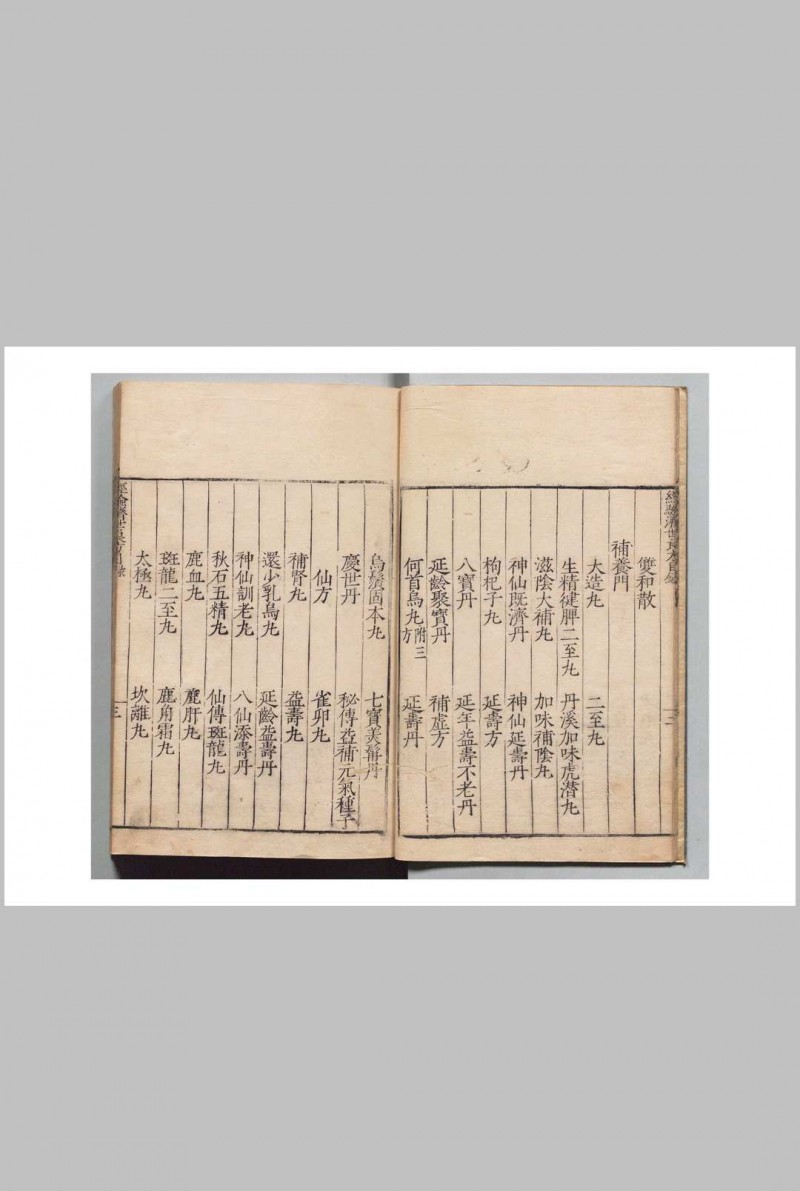 經驗濟世良方目錄
雙和散
補養門
大造丸　二至丸
生精健脾二至丸　丹溪加味虎潛丸
滋陰大補丸　加味補陰丸
神仙既濟丹　神仙延壽丹
枸杞子丸　延壽方
八寶丹　延年益壽不老丹
延齡聚寶丹　補虛方
何首烏丸附三方　延壽丹
烏鬚固本丸　七寶美髯丹
慶世丹　秘傳益補元氣種子
仙方　雀卵丸
補腎丸　益壽丸
還少乳烏丸　延齡益壽丹
神仙訓老丸　八仙添壽丹
秋石五精丸　仙傳斑龍丸
鹿血丸　鹿肝丸
斑龍二至丸　鹿角霜丸
太極丸　坎離丸
三